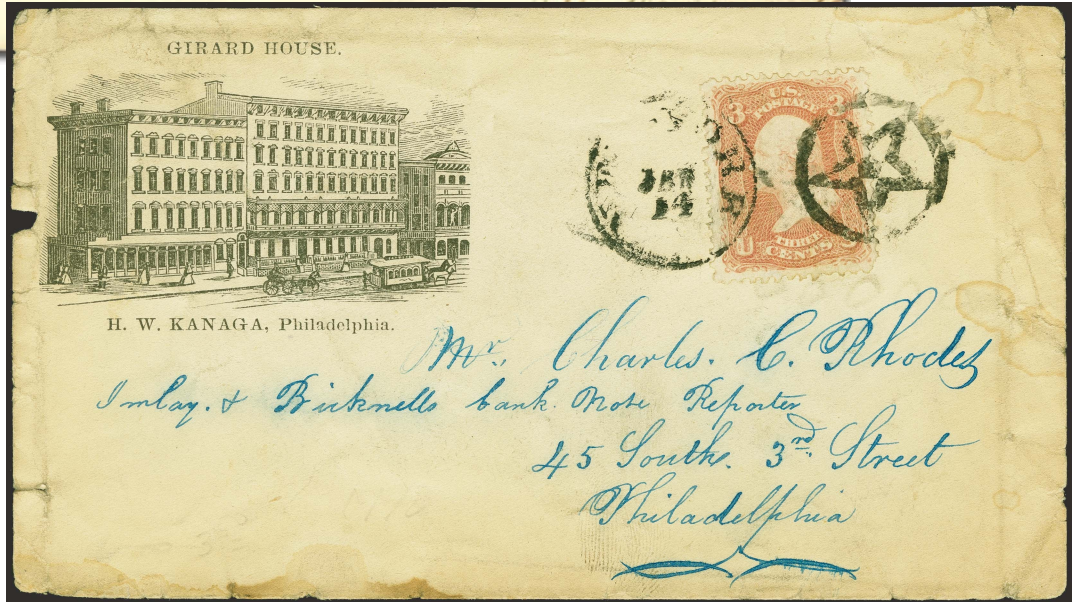 GIRARD HOUSE.
H. W. KANAGA, Philadelphia.
JAN
14
3 U.S. 3
POSTAGE
U
THREE
CENTS
Mr. Charles. C. Rhodes
Imlay. & Bicknells bank Note Reporter
45 South. 3rd. Street
Philadelphia